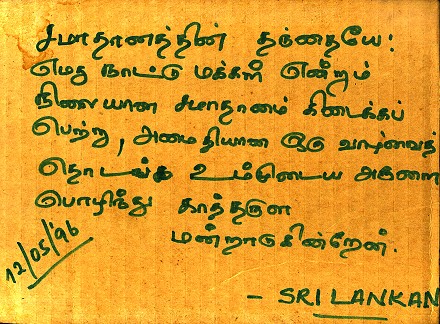 சமாதானத்தின் தந்தையே!
எமது நாட்டு மக்கள் என்றும்
நிலையான சமாதானம் கிடைக்கப்
பெற்று, அமைதியான ஒரு வாழ்வைத்
தொடங்க உம்முடைய அருளை
பொழிந்து காத்தருள
மன்றாடுகின்றேன்.
12/05/'96
- SRI LANKAN